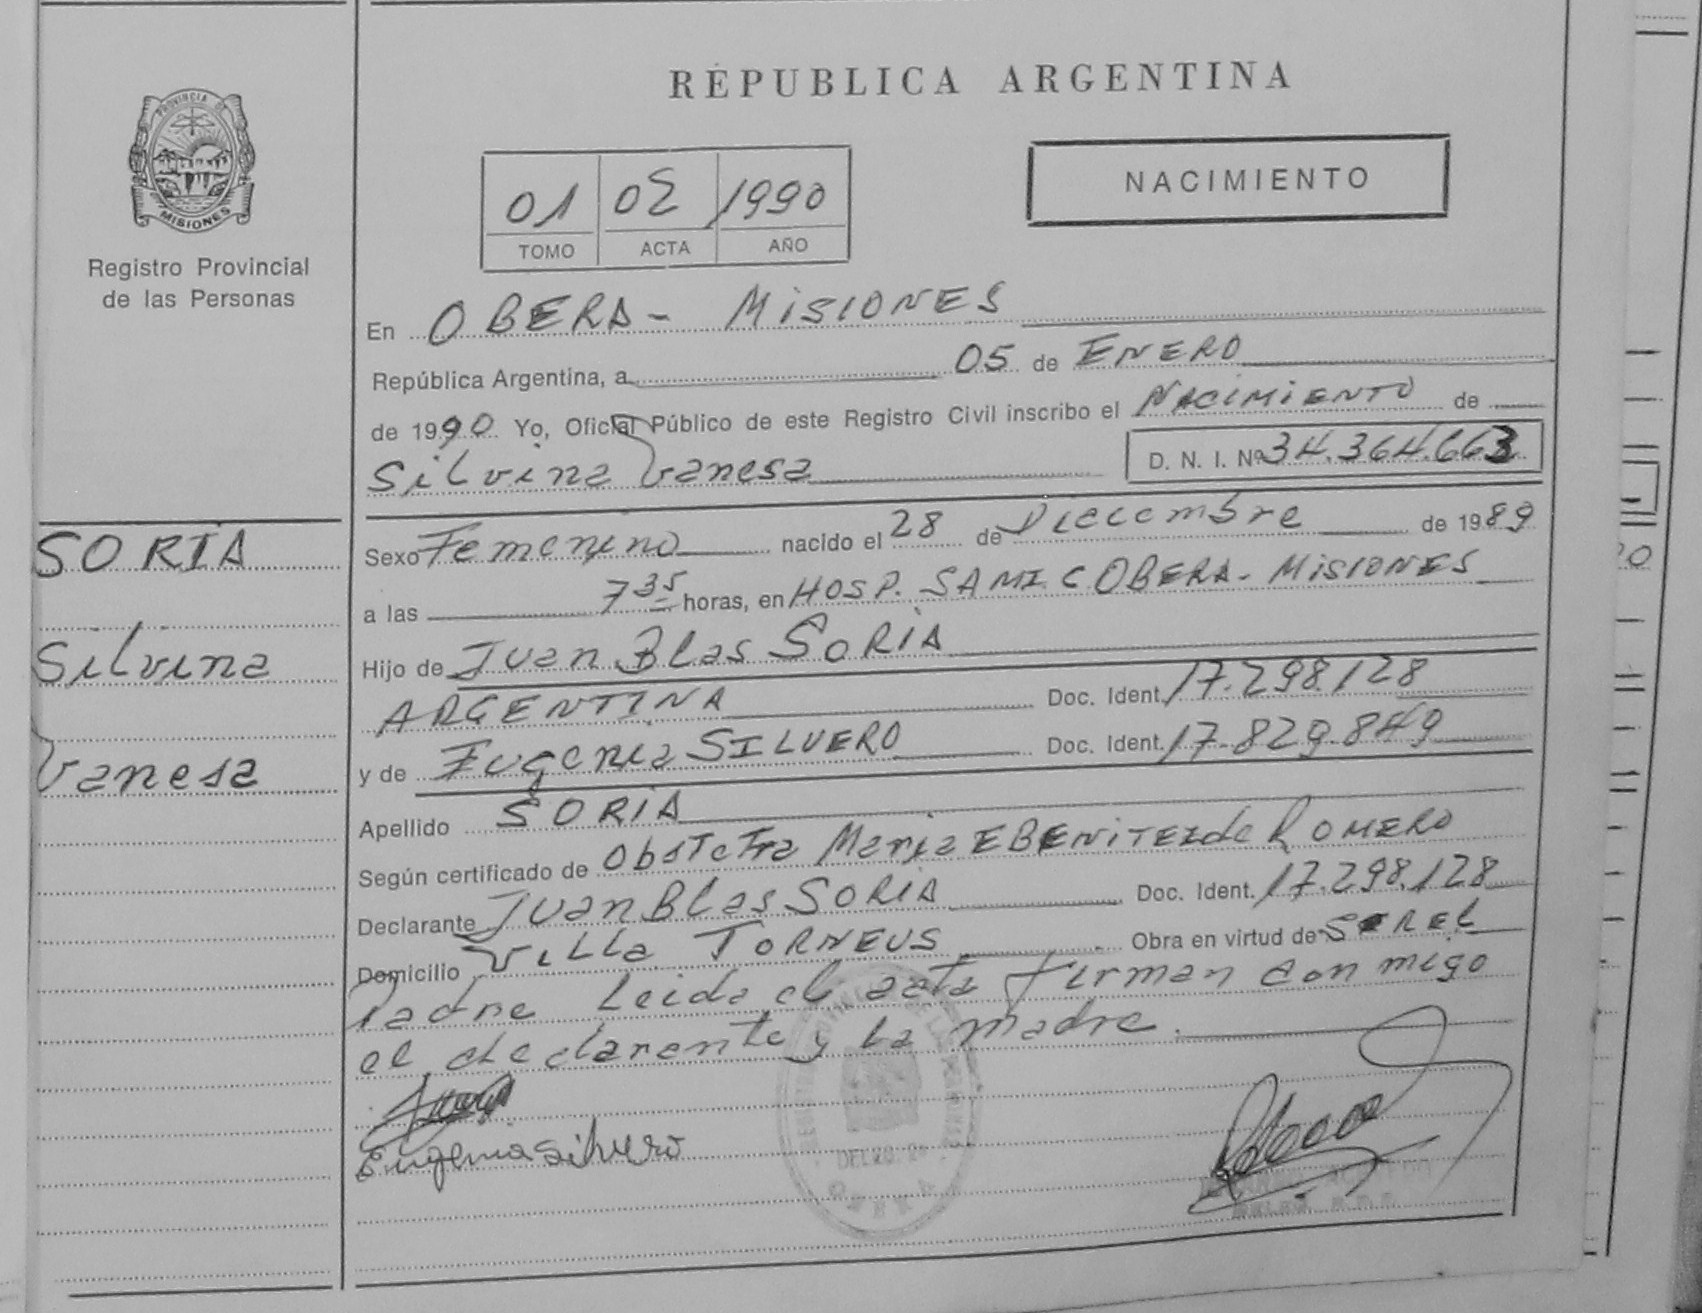 REPUBLICA ARGENTINA
PROVINCIA DE
MISIONES
Registro Provincial
de las Personas
01 02 1990
TOMO ACTA AÑO
NACIMIENTO
En OBERA - MISIONES
República Argentina, a 05 de ENERO
de 1990 Yo, Oficial Público de este Registro Civil inscribo el NACIMIENTO de
Silvina Vanesa D. N. I. Nº 34.364.663
SORIA
Silvina
Vanesa
Sexo Femenino nacido el 28 de Diciembre de 1989
a las 7 35 horas, en HOSP. SAMIC OBERA - MISIONES
Hijo de Juan Blas SORIA
ARGENTINA Doc. Ident. 17.298.128
y de Eugenia SILVERO Doc. Ident. 17.829.849
Apellido SORIA
Según certificado de Obstetra Maria E BENITEZ de ROMERO
Declarante Juan Blas SORIA Doc. Ident. 17.298.128
Domicilio Villa TORNEUS Obra en virtud de SER EL
Padre Leida el acta firman conmigo
el declarante y la madre.
Eugenia Silvero
OBERA